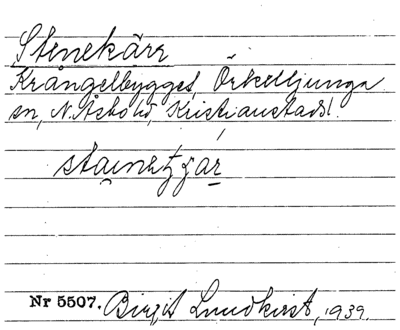 Stenekärr
Krångelbygget, Örkelljunga
sn, N. Åsbo hd, Kristianstads l.
Nr 5507. Birgit Lundkvist, 1939.